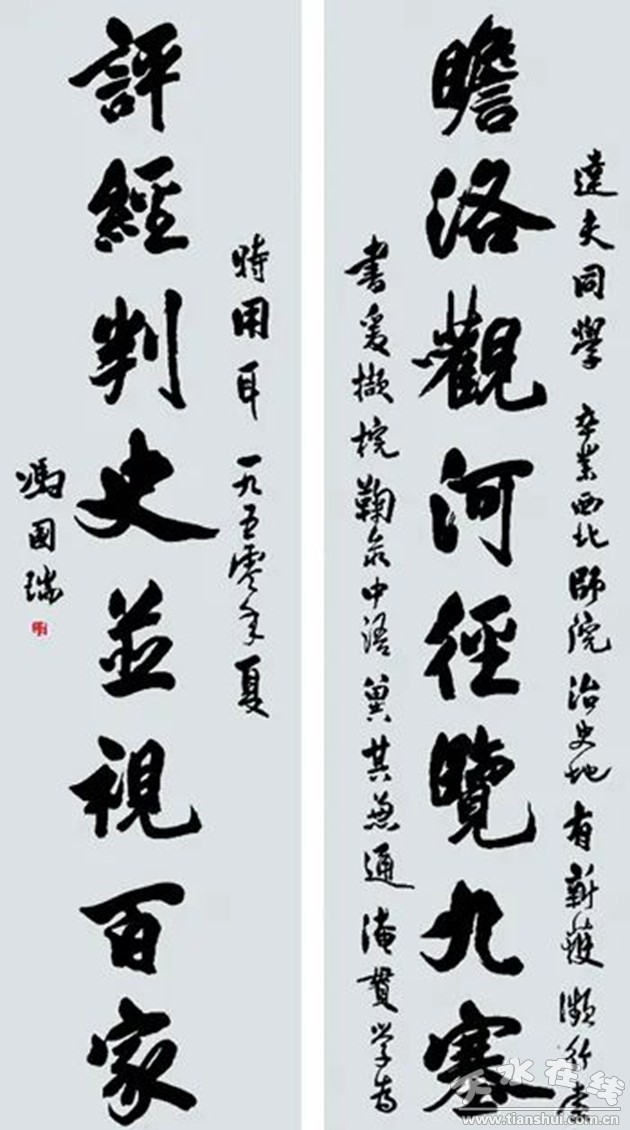 達夫同學 卒業西北師院治史地有新獲瀕行索
瞻洛觀河徑覽九塞
書爰撷梡鞠录中語冀其兼通淹貫学为
時用耳 一九五零年夏
評經判史並視百家
馮國瑞
天水在线
www.tianshui.com.cn